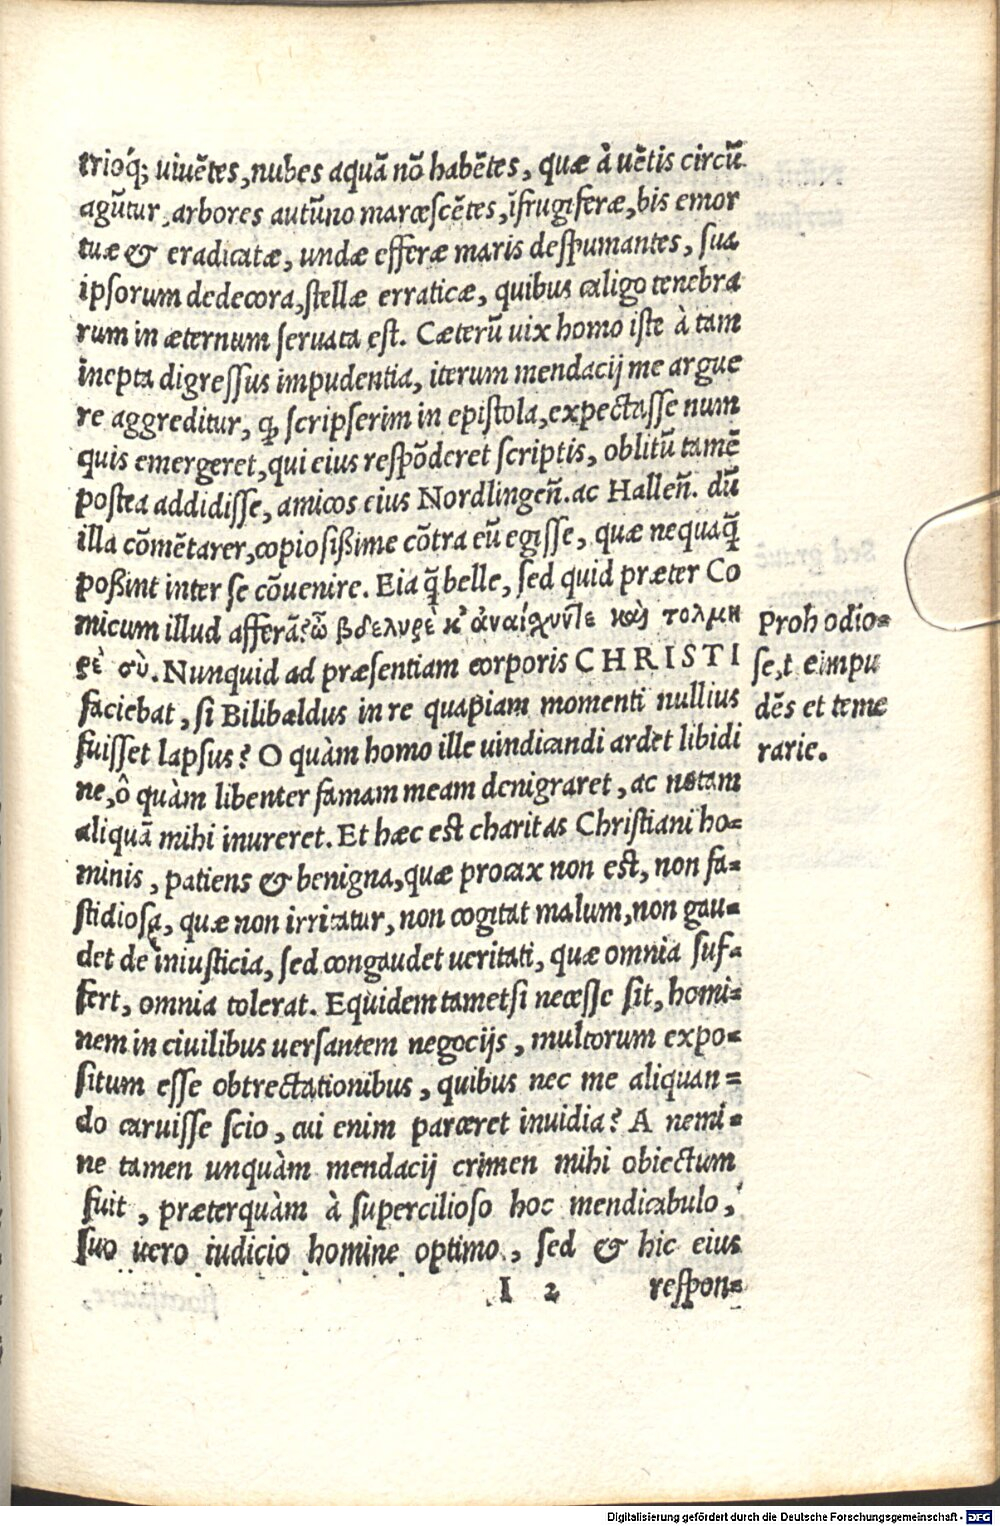 trioq́; uiuẽtes, nubes aquã nõ habẽtes, quæ à uẽtis circũ
agũtur, arbores autũno marcescẽtes, ĩfrugiferæ, bis emor
tuæ & eradicatæ, undæ efferæ maris despumantes, sua
ipsorum dedecora, stellæ erraticæ, quibus caligo tenebra
rum in æternum seruata est. Cæterũ uix homo iste à tam
inepta digressus impudentia, iterum mendacij me argue
re aggreditur, ꝙ scripserim in epistola, expectasse num
quis emergeret, qui eius respõderet scriptis, oblitũ tamẽ
postea addidisse, amicos eius Nordlingeñ. ac Halleñ. dũ
illa cõmẽtarer, copiosißime cõtra eũ egisse, quæ nequaq̃
poßint inter se cõuenire. Eia q̃ belle, sed quid præter Co
micum illud afferã? ὦ βδελυρὲ κ̓ ἀναίσχυντε καὶ τολμη
ρὲ σὺ. Nunquid ad præsentiam corporis CHRISTI
faciebat, si Bilibaldus in re quapiam momenti nullius
fuisset lapsus? O quàm homo ille uindicandi ardet libidi
ne, ô quàm libenter famam meam denigraret, ac notam
aliquã mihi inureret. Et hæc est charitas Christiani ho-
minis, patiens & benigna, quæ procax non est, non fa-
stidiosa, quæ non irritatur, non cogitat malum, non gau-
det de iniusticia, sed congaudet ueritati, quæ omnia suf-
fert, omnia tolerat. Equidem tametsi necesse sit, homi-
nem in ciuilibus uersantem negocijs, multorum expo-
situm esse obtrectationibus, quibus nec me aliquan-
do caruisse scio, cui enim parceret inuidia? A nemi-
ne tamen unquàm mendacij crimen mihi obiectum
fuit, præterquàm à supercilioso hoc mendicabulo,
suo uero iudicio homine optimo, sed & hic eius
I 2 respon-
Proh odio-
se, et impu
dẽs et teme
rarie.
Digitalisierung gefördert durch die Deutsche Forschungsgemeinschaft - DFG